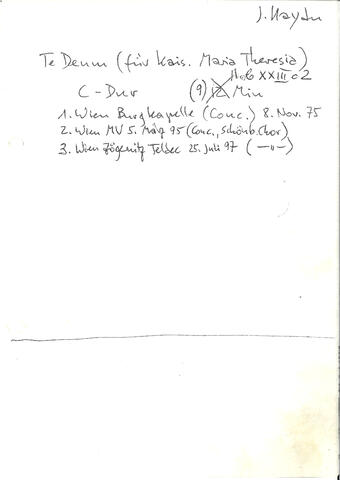 J. Haydn
Te Deum (für Kais. Maria Theresia)
Hob XXIIIc2
C-Dur (9) 12 Min
1. Wien Burgkapelle (Conc.) 8. Nov. 75
2. Wien MV 5. März 95 (Conc., Schönb. Chor)
3. Wien Zögernitz Teldec 25. Juli 97 ( —"— )